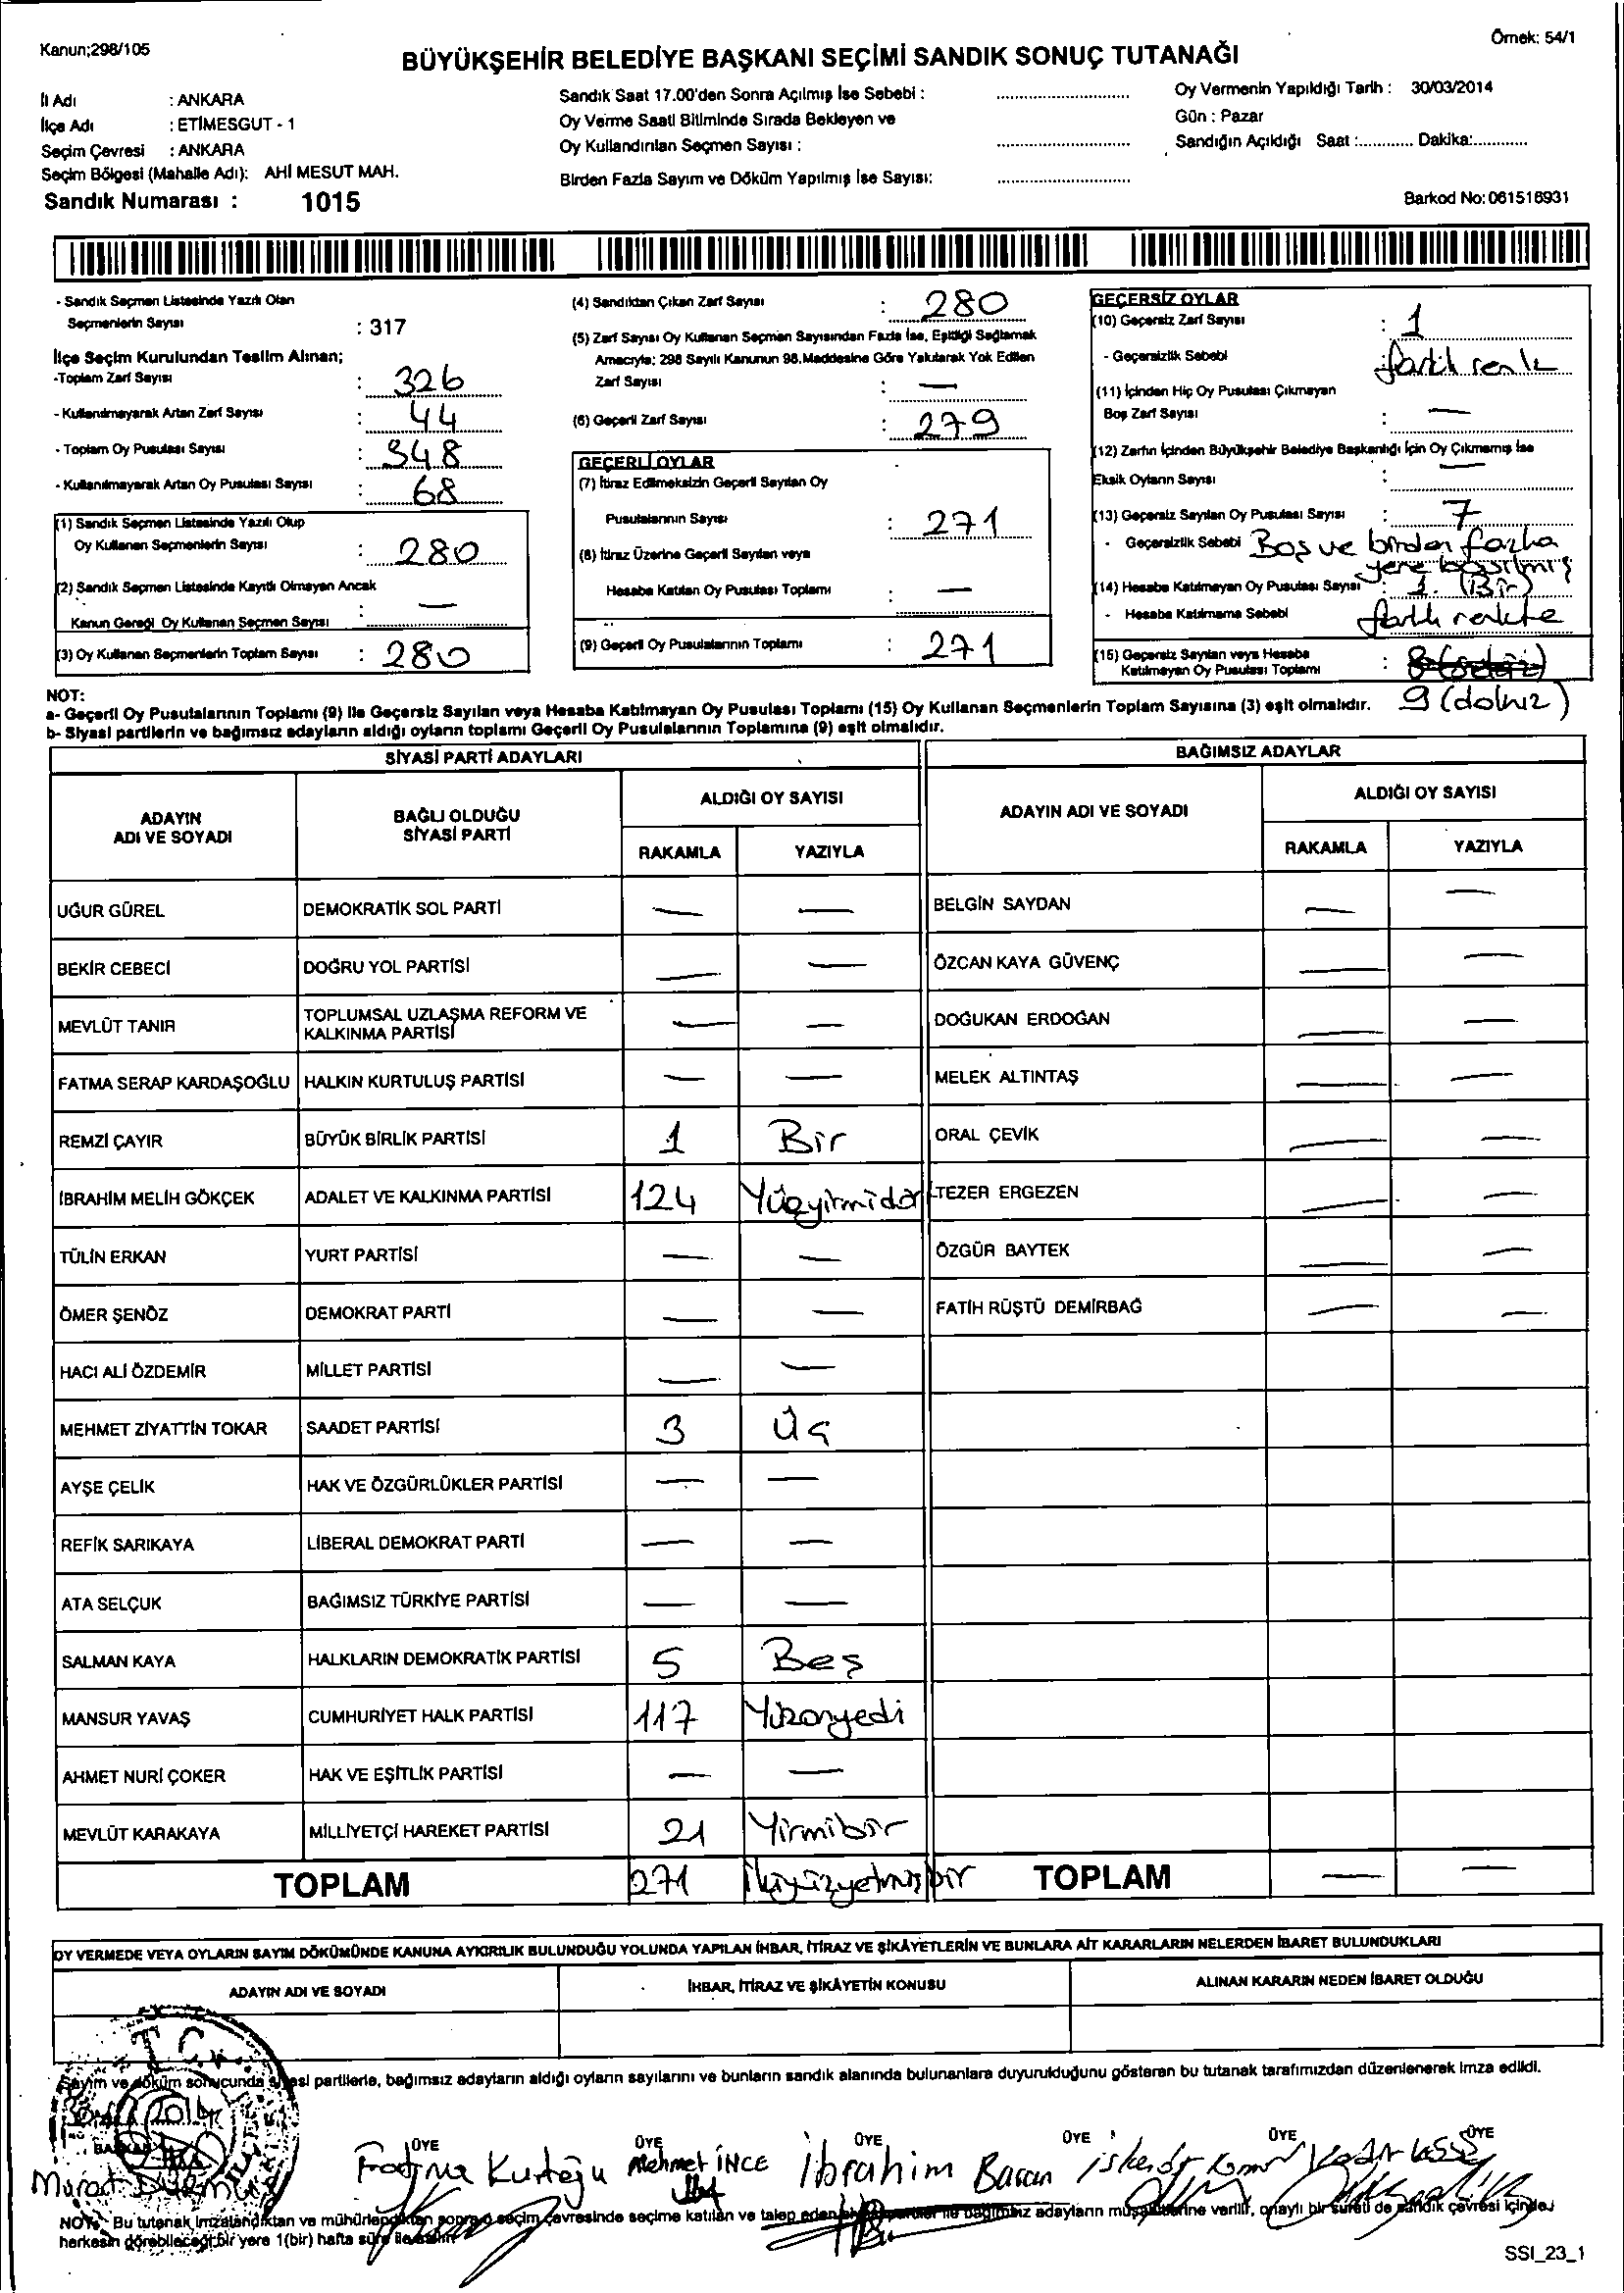 Kanun;298/105
Örnek: 54/1
BÜYÜKŞEHİR BELEDİYE BAŞKANI SEÇİMİ SANDIK SONUÇ TUTANAĞI
İl Adı : ANKARA
İlçe Adı : ETİMESGUT - 1
Seçim Çevresi : ANKARA
Seçim Bölgesi (Mahalle Adı): AHİ MESUT MAH.
Sandık Numarası : 1015
Sandık Saat 17.00'den Sonra Açılmış İse Sebebi :
Oy Verme Saati Bitiminde Sırada Bekleyen ve
Oy Kullandırılan Seçmen Sayısı :
Birden Fazla Sayım ve Döküm Yapılmış İse Sayısı:
Oy Vermenin Yapıldığı Tarih : 30/03/2014
Gün : Pazar
Sandığın Açıldığı Saat :............ Dakika:............
Barkod No: 061516931
- Sandık Seçmen Listesinde Yazılı Olan
Seçmenlerin Sayısı : 317
İlçe Seçim Kurulundan Teslim Alınan;
-Toplam Zarf Sayısı : 326
- Kullanılmayarak Artan Zarf Sayısı : 44
- Toplam Oy Pusulası Sayısı : 348
- Kullanılmayarak Artan Oy Pusulası Sayısı : 68
(1) Sandık Seçmen Listesinde Yazılı Olup
Oy Kullanan Seçmenlerin Sayısı : 280
(2) Sandık Seçmen Listesinde Kayıtlı Olmayan Ancak
Kanun Gereği Oy Kullanan Seçmen Sayısı : —
(3) Oy Kullanan Seçmenlerin Toplam Sayısı : 280
(4) Sandıktan Çıkan Zarf Sayısı : 280
(5) Zarf Sayısı Oy Kullanan Seçmen Sayısından Fazla İse, Eşitliği Sağlamak
Amacıyla; 298 Sayılı Kanunun 98.Maddesine Göre Yakılarak Yok Edilen
Zarf Sayısı : —
(6) Geçerli Zarf Sayısı : 279
GEÇERLİ OYLAR
(7) İtiraz Edilmeksizin Geçerli Sayılan Oy
Pusulalarının Sayısı : 271
(8) İtiraz Üzerine Geçerli Sayılan veya
Hesaba Katılan Oy Pusulası Toplamı : —
(9) Geçerli Oy Pusulalarının Toplamı : 271
GEÇERSİZ OYLAR
(10) Geçersiz Zarf Sayısı : 1
- Geçersizlik Sebebi : farklı renk
(11) İçinden Hiç Oy Pusulası Çıkmayan
Boş Zarf Sayısı : —
(12) Zarfın İçinden Büyükşehir Belediye Başkanlığı İçin Oy Çıkmamış İse
Eksik Oyların Sayısı : —
(13) Geçersiz Sayılan Oy Pusulası Sayısı : 7
- Geçersizlik Sebebi Boş ve birden fazla
yere basılmış
(14) Hesaba Katılmayan Oy Pusulası Sayısı : 1. (Bir)
- Hesaba Katılmama Sebebi farklı renkte
(15) Geçersiz Sayılan veya Hesaba
Katılmayan Oy Pusulası Toplamı : 8 (sekiz)
9 (dokuz)
NOT:
a- Geçerli Oy Pusulalarının Toplamı (9) ile Geçersiz Sayılan veya Hesaba Katılmayan Oy Pusulası Toplamı (15) Oy Kullanan Seçmenlerin Toplam Sayısına (3) eşit olmalıdır.
b- Siyasi partilerin ve bağımsız adayların aldığı oyların toplamı Geçerli Oy Pusulalarının Toplamına (9) eşit olmalıdır.
SİYASİ PARTİ ADAYLARI BAĞIMSIZ ADAYLAR
ADAYIN ADI VE SOYADI BAĞLI OLDUĞU SİYASİ PARTİ ALDIĞI OY SAYISI ADAYIN ADI VE SOYADI ALDIĞI OY SAYISI
RAKAMLA YAZIYLA RAKAMLA YAZIYLA
UĞUR GÜREL DEMOKRATİK SOL PARTİ — — BELGİN SAYDAN — —
BEKİR CEBECİ DOĞRU YOL PARTİSİ — — ÖZCAN KAYA GÜVENÇ — —
MEVLÜT TANIR TOPLUMSAL UZLAŞMA REFORM VE KALKINMA PARTİSİ — — DOĞUKAN ERDOĞAN — —
FATMA SERAP KARDAŞOĞLU HALKIN KURTULUŞ PARTİSİ — — MELEK ALTINTAŞ — —
REMZİ ÇAYIR BÜYÜK BİRLİK PARTİSİ 1 Bir ORAL ÇEVİK — —
İBRAHİM MELİH GÖKÇEK ADALET VE KALKINMA PARTİSİ 124 Yüzyirmidört TEZER ERGEZEN — —
TÜLİN ERKAN YURT PARTİSİ — — ÖZGÜR BAYTEK — —
ÖMER ŞENÖZ DEMOKRAT PARTİ — — FATİH RÜŞTÜ DEMİRBAĞ — —
HACI ALİ ÖZDEMİR MİLLET PARTİSİ — —
MEHMET ZİYATTİN TOKAR SAADET PARTİSİ 3 Üç
AYŞE ÇELİK HAK VE ÖZGÜRLÜKLER PARTİSİ — —
REFİK SARIKAYA LİBERAL DEMOKRAT PARTİ — —
ATA SELÇUK BAĞIMSIZ TÜRKİYE PARTİSİ — —
SALMAN KAYA HALKLARIN DEMOKRATİK PARTİSİ 5 Beş
MANSUR YAVAŞ CUMHURİYET HALK PARTİSİ 117 Yüzonyedi
AHMET NURİ ÇOKER HAK VE EŞİTLİK PARTİSİ — —
MEVLÜT KARAKAYA MİLLİYETÇİ HAREKET PARTİSİ 21 Yirmibir
TOPLAM 271 İkiyüzyetmişbir TOPLAM — —
OY VERMEDE VEYA OYLARIN SAYIM DÖKÜMÜNDE KANUNA AYKIRILIK BULUNDUĞU YOLUNDA YAPILAN İHBAR, İTİRAZ VE ŞİKÂYETLERİN VE BUNLARA AİT KARARLARIN NELERDEN İBARET BULUNDUKLARI
ADAYIN ADI VE SOYADI İHBAR, İTİRAZ VE ŞİKÂYETİN KONUSU ALINAN KARARIN NEDEN İBARET OLDUĞU
T.C.
Sayım ve döküm sonucunda siyasi partilerle, bağımsız adayların aldığı oyların sayılarını ve bunların sandık alanında bulunanlara duyurulduğunu gösteren bu tutanak tarafımızdan düzenlenerek imza edildi.
2014
BAŞKAN ÜYE ÜYE ÜYE ÜYE ÜYE ÜYE
Murat Fatma Mehmet İNCE İbrahim Basan
NOT: Bu tutanak imzalandıktan ve mühürlendikten sonra o seçim çevresinde seçime katılan ve talep eden adayların müşahitlerine verilir, onaylı bir sureti de sandık çevresi içinde
herkesin görebileceği bir yere 1(bir) hafta süre ile asılır.
SSI_23_1